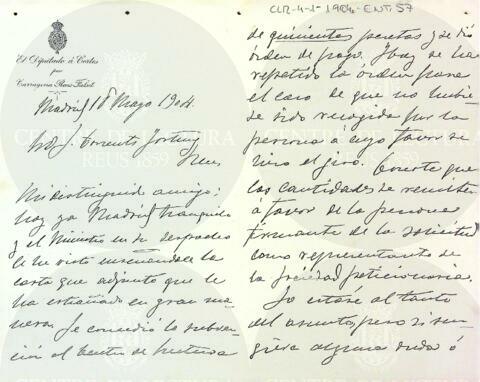 CLR-4-1-1904-ENT.57
El Diputado á Cortes
por
Tarragona Reus Falset
Madrid 18 Mayo 1904.
Reus
Mi distinguido amigo:
hoy ya Madrid tranquilo
y el Ministro en su despacho
le he visto enseñandole la
carta que adjunto que le
ha extrañado en gran ma
nera. Se concedió la subven
ción al Centro de Lectura
de quinientas pesetas y se dió
órden de pago. Hoy se ha
repetido la orden para
el caso de que no hubie
se sido recogida por la
persona á cuyo favor se
hizo el giro. Conste que
las cantidades se remiten
á favor de la persona
firmante de la solicitud
como representante de
la Sociedad peticionaria.
Yo estaré al tanto
del asunto, pero si sur
giera alguna duda ó
CENTRE DE LECTURA
REUS 1859
CENTRE DE LECTURA
REUS 1859